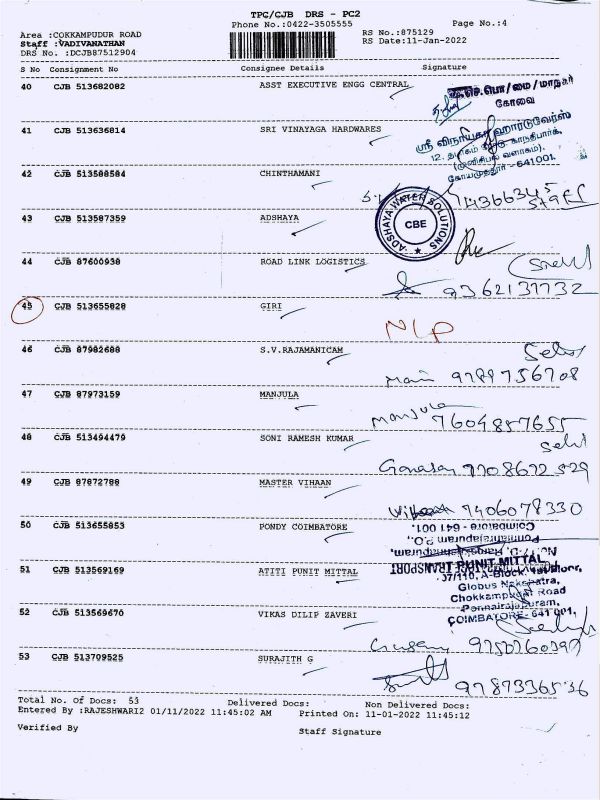 TPC/CJB DRS - PC2
Phone No.:0422-3505555
Page No.:4
Area :COKKAMPUDUR ROAD
Staff :VADIVANATHAN
DRS No. :DCJB87512904
RS No.:875129
RS Date:11-Jan-2022
S No Consignment No Consignee Details Signature
40 CJB 513682082 ASST EXECUTIVE ENGG CENTRAL
கோவை
41 CJB 513636814 SRI VINAYAGA HARDWARES
ஸ்ரீ விநாயகா ஹார்டுவேர்ஸ்
கோயமுத்தூர் - 641001.
42 CJB 513588584 CHINTHAMANI
43 CJB 513587359 ADSHAYA
ADSHAYA WATER SOLUTIONS
CBE
44 CJB 87600938 ROAD LINK LOGISTICS
9362137732
45 CJB 513655828 GIRI
NLP
46 CJB 87982688 S.V.RAJAMANICAM
Mani 9789756708
47 CJB 87973159 MANJULA
Manjula 7604857655
48 CJB 513494479 SONI RAMESH KUMAR
7708672529
49 CJB 87872788 MASTER VIHAAN
7406078330
50 CJB 513655853 PONDY COIMBATORE
Coimbatore - 641 001.
Ponnairajapuram P.O.,
51 CJB 513569169 ATITI PUNIT MITTAL
PUNIT MITTAL
37/110, A-Block,
Globus Nakshatra,
Chokkampudur Road
Ponnairajapuram,
COIMBATORE-641 001.
52 CJB 513569670 VIKAS DILIP ZAVERI
53 CJB 513709525 SURAJITH G
9787336536
Total No. Of Docs: 53 Delivered Docs: Non Delivered Docs:
Entered By :RAJESHWARI2 01/11/2022 11:45:02 AM Printed On: 11-01-2022 11:45:12
Verified By Staff Signature